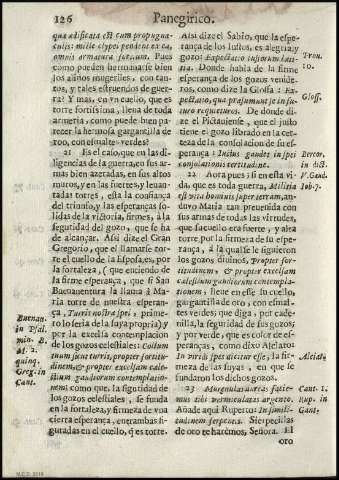 126
Panegirico.
quæ ædificata est cum propugna-
culis: mille clypei pendent ex ea,
omnis armatura fortium. Pues
como pueden hermanarse bien
los aliños mugeriles, con tan-
tos, y tales estruendos de guer-
ra? Y mas, en vn cuello, que es
torre fortissima, llena de toda
armeria, como puede bien pa-
recer la hermosa gargantilla de
oro, con esmaltes verdes?
21 Es el caso, que en las di-
ligencias de la guerra, q̃ en sus ar-
mas bien azeradas, en sus altos
muros, y en las fuertes, y leuan-
tadas torres, està la confiança
del triunfo, y las esperanças so-
lidas de la victoria, firmes, à la
seguridad del gozo, que se ha
de alcançar. Assi dize el Gran
Gregorio, que el llamarse tor-
re el cuello de la Esposa, es, por
la fortaleza, (que enciendo de
la firme esperança, que si San
Buenauentura la llama à Ma-
ria torre de nuestra esperan-
ça, Turris nostra spei, prime-
ro lo seria de la suya propria) y
por la excelsa contemplacion
de los gozos celestiales: Collum
tuum sicut turris, propter fortitu-
dinem, & propter excelsam cæle-
stium gaudiorum contemplatio-
nem: como que, la seguridad de
los gozos celestiales, se funda
en la fortaleza, y firmeza de vna
cierta esperança, en rambas fi-
guradas en el cuello, q̃ es torre.
Buenau.
in Psal-
mio B.
M. 2.
quinq.
Greg. in
Cant.
Assi dize el Sabio, que la espe-
rança de los Iustos, es alegria, y
gozo: Expectatio iustorum læti-
tia. Donde habla de la firme
esperança de los gozos vende-
ros, como dize la Glossa: Ex-
pectatio, qua præsumunt se in fu-
turo requieturos. De donde di-
ze el Pictauiense, que el justo
tiene el gozo librado en la cer-
teza de la consolacion de su es-
perança: Iustus gaudet in spei
consolationis certitudine.
22 Aora pues; si en esta vi-
da, que es toda guerra, Militia
est vita hominis super terram, an-
duvo Maria tan preuenida con
sus armas de todas las virtudes,
que su cuello era fuerte, y alta
torre por la firmeza de su espe-
rança, à la qual se le siguieron
los gozos diuinos, Propter for-
titudinem, & propter excelsam
cælestium gaudiorum contempla-
tionem; lleue en esse su cuello,
gargantilla de oro, con esmal-
tes verdes; que diga, por cade-
nilla, la seguridad de sus gozos;
y por verde, que es color de es-
perança, como dixo Alciato:
In viridi spes dicitur esse, la fir-
meza de las suyas, en que se
fundaron los dichos gozos.
23 Murenulas aureas facie-
mus tibi vermiculatas argento.
Añade aqui Ruperto: In simili-
tudinem serpentis. Sierpecillas
de oro te harèmos, Señora. El
oro
Prou.
10.
Gloss.
Bercor.
in dict.
V. Gaud.
Iob. 7.
Alciat.
Cant. 1.
Rup. in
Cant.